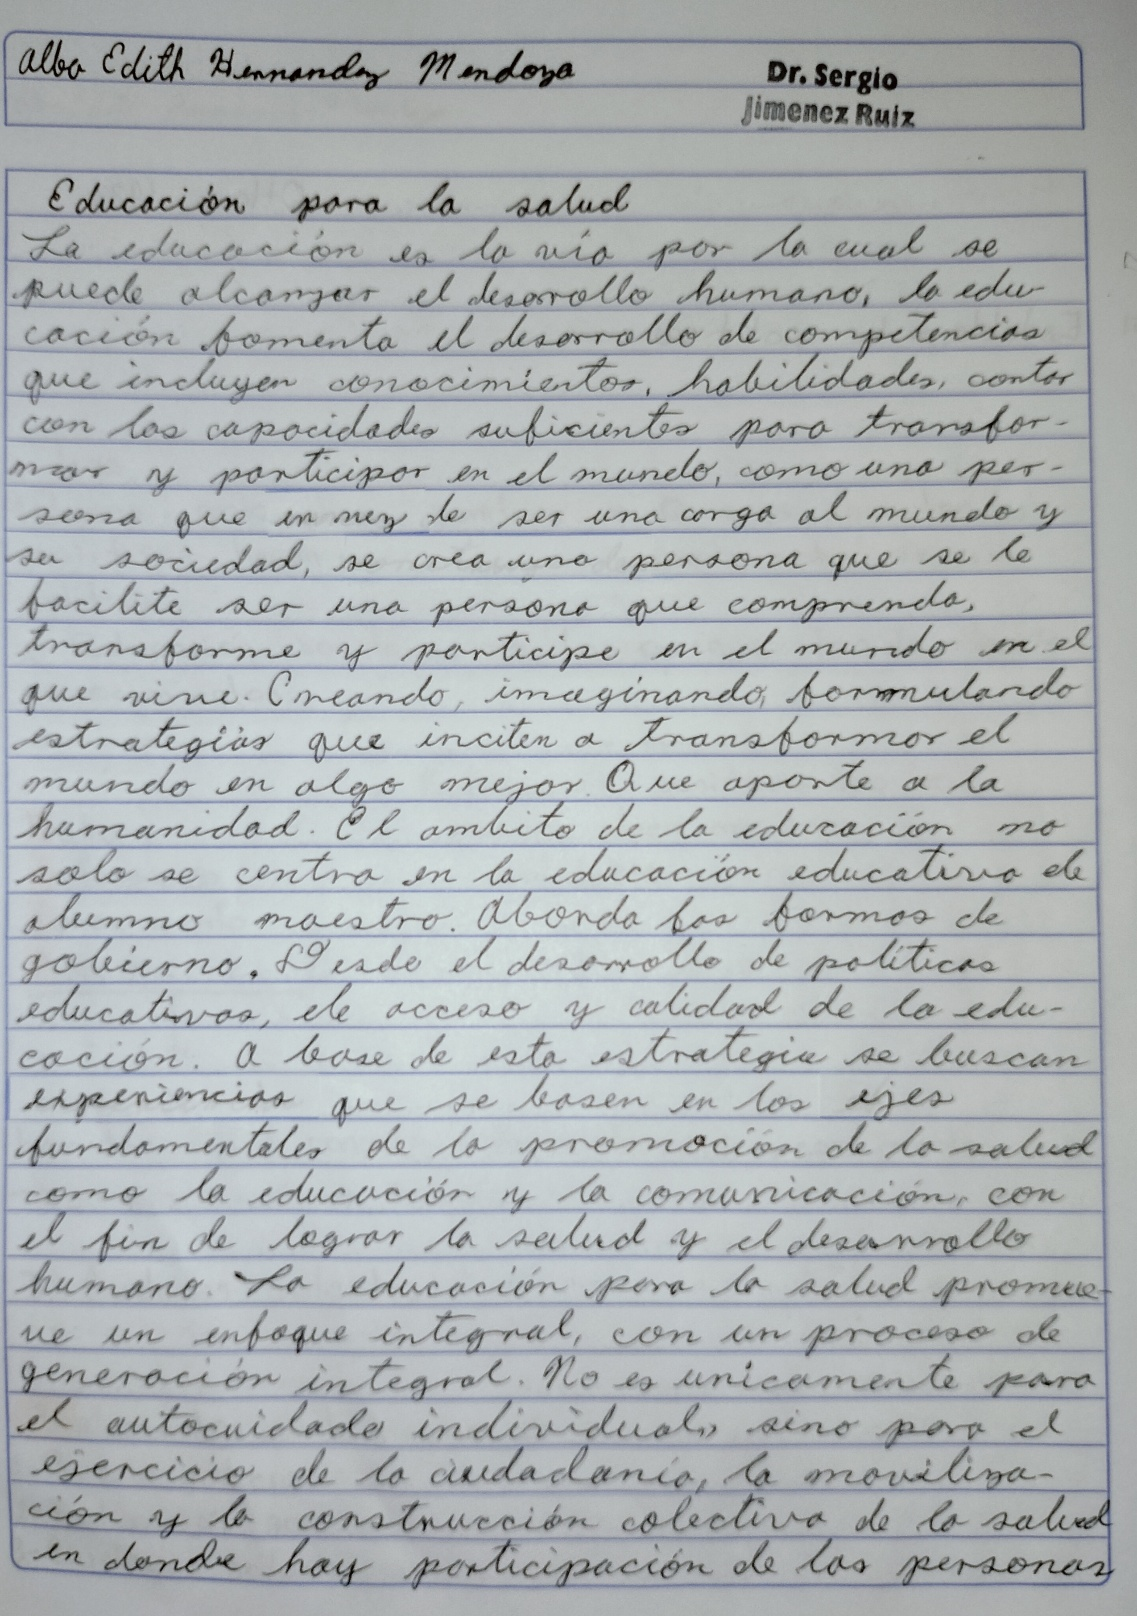 Alba Edith Hernandez Mendoza
Dr. Sergio
Jimenez Ruiz
Educación para la salud
La educación es la vía por la cual se
puede alcanzar el desarrollo humano, la edu-
cación fomenta el desarrollo de competencias
que incluyen conocimientos, habilidades, contar
con las capacidades suficientes para transfor-
mar y participar en el mundo, como una per-
sona que en vez de ser una carga al mundo y
su sociedad, se crea una persona que se le
facilite ser una persona que comprenda,
transforme y participe en el mundo en el
que vive. Creando, imaginando, formmulando
estrategías que inciten a transformar el
mundo en algo mejor. Que aporte a la
humanidad. El ambito de la educación no
solo se centra en la educación educativa de
alumno maestro. Aborda las formas de
gobierno. Desde el desarrollo de políticas
educativas, el acceso y calidad de la edu-
cación. A base de esta estrategia se buscan
experiencias que se basen en los ejes
fundamentales de la promoción de la salud
como la educación y la comunicación, con
el fin de lograr la salud y el desarrollo
humano. La educación para la salud promue-
ve un enfoque integral, con un proceso de
generación integral. No es unicamente para
el autocuidado individual, sino para el
ejercicio de la ciudadanía, la moviliza-
ción y la construcción colectiva de la salud
en donde hay participación de las personas